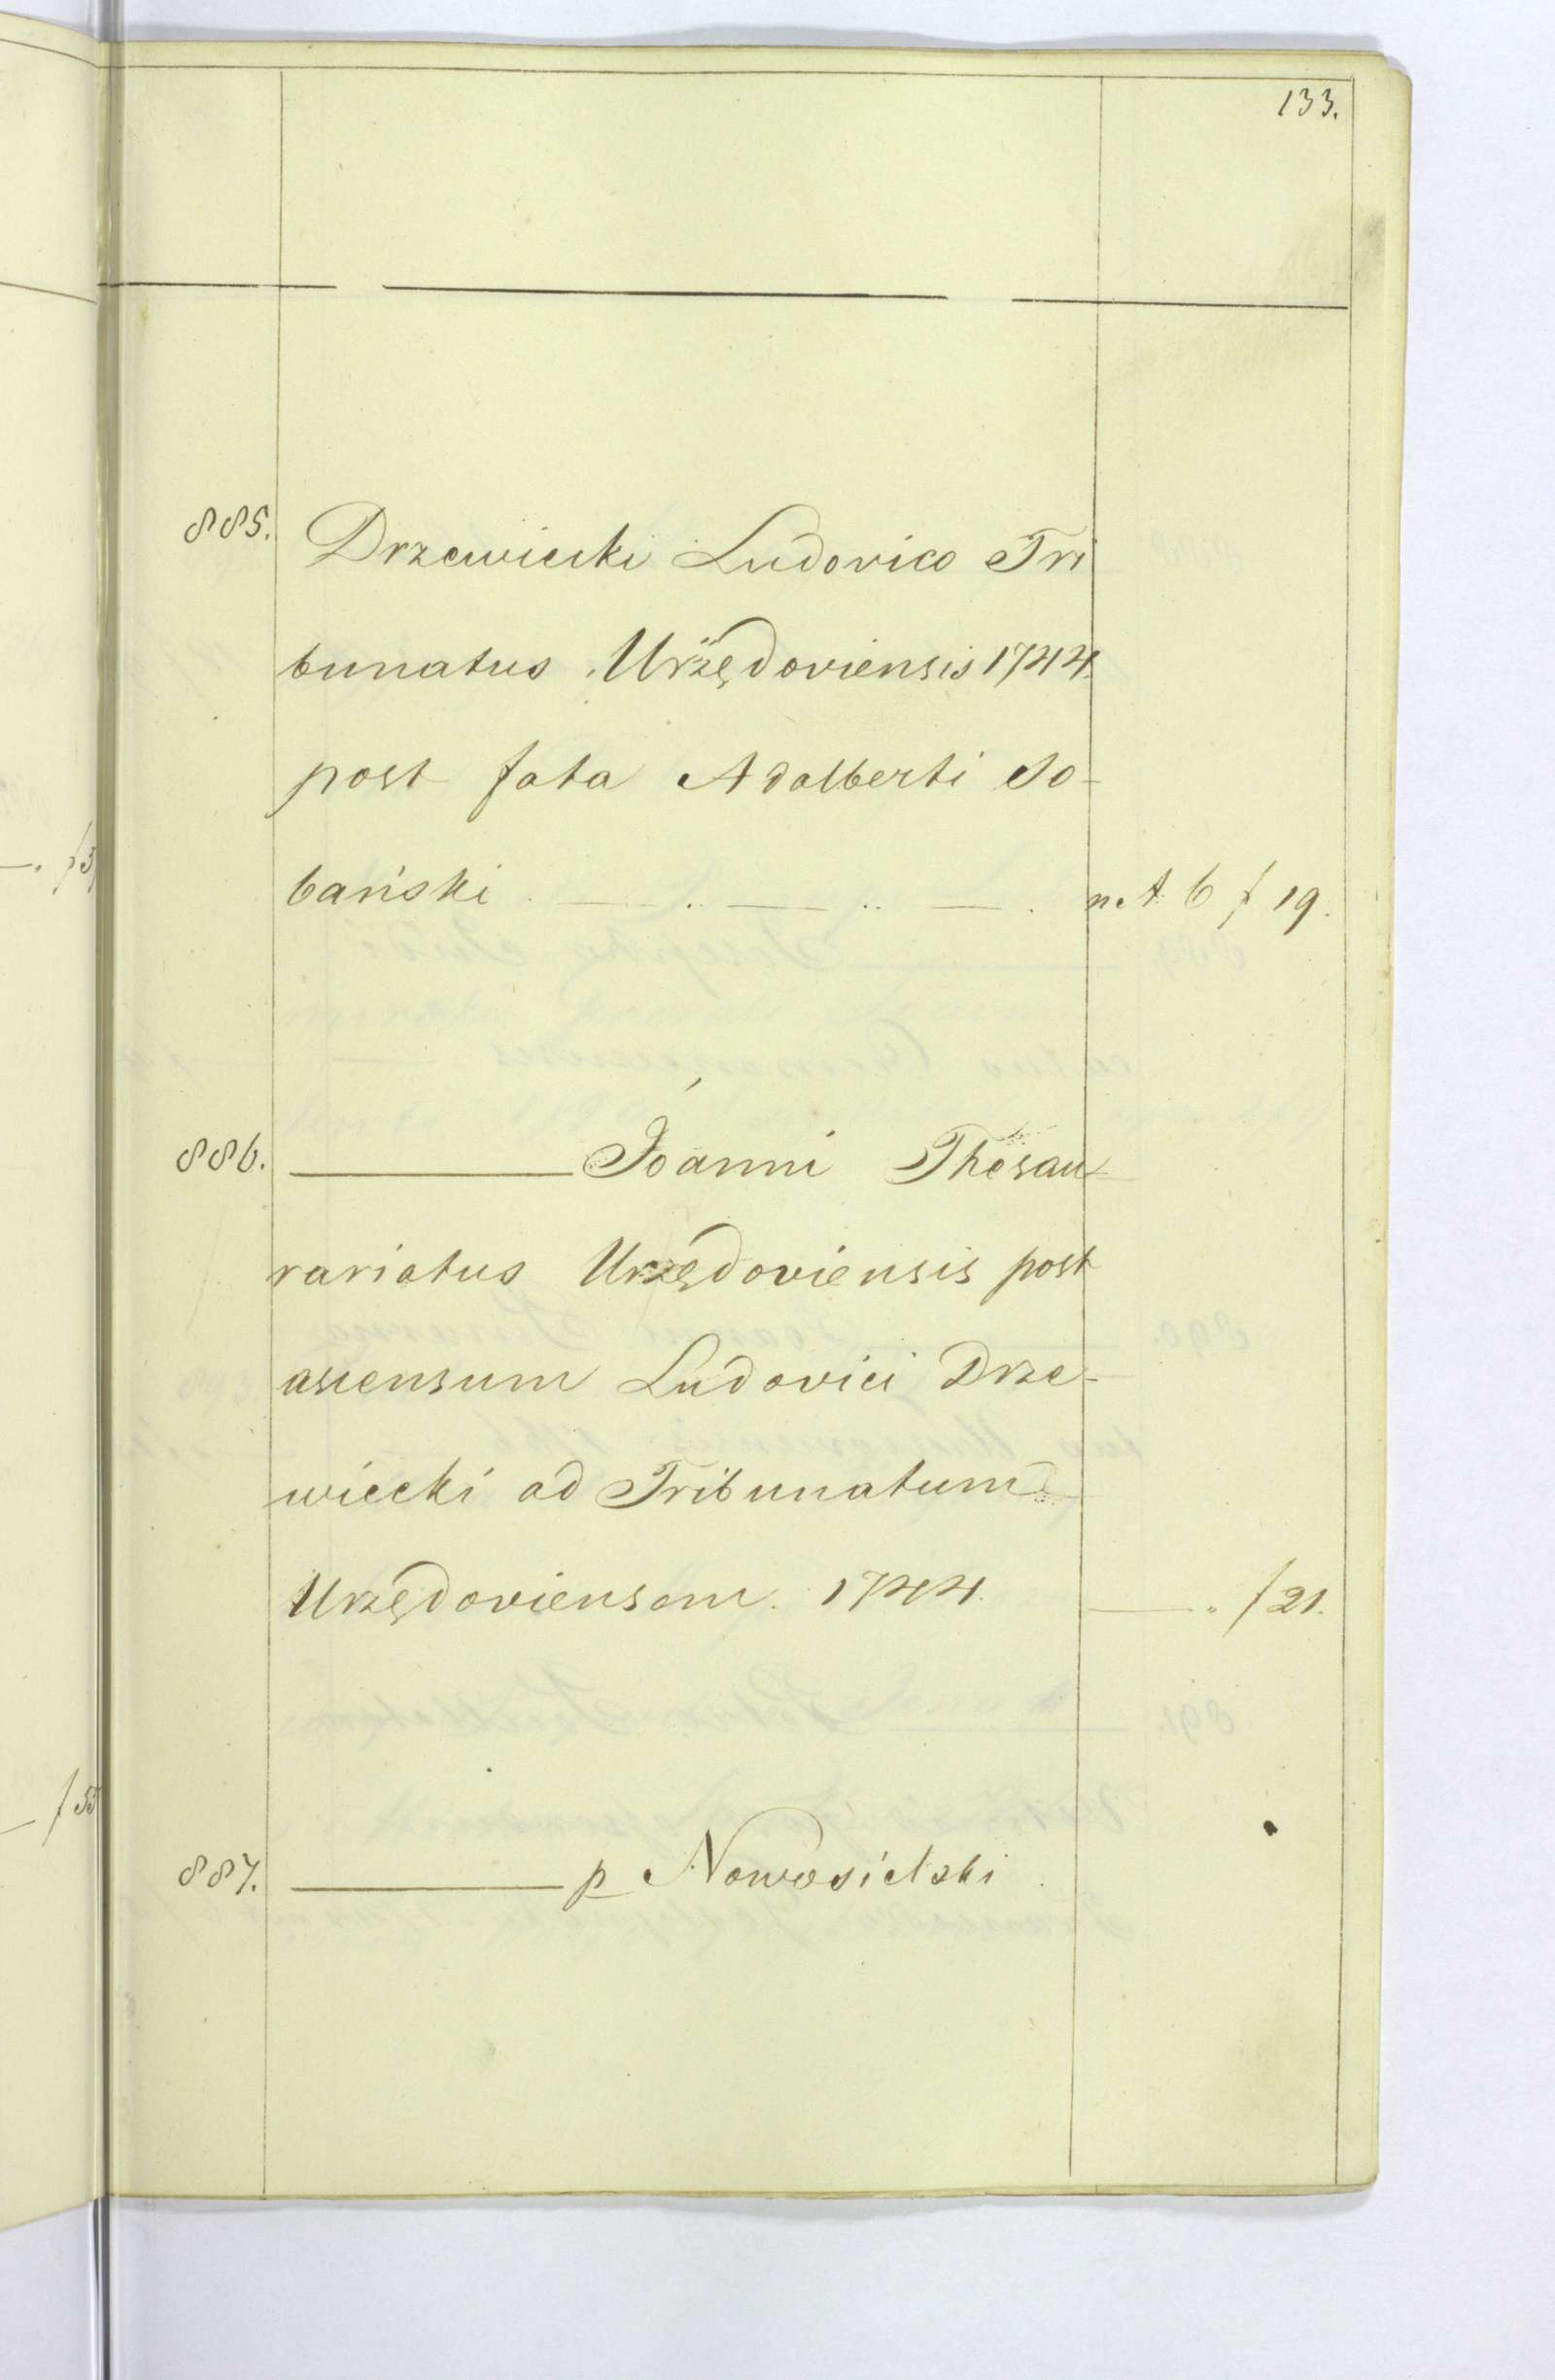 133.
885. Drzewiecki Ludovico Tri
bunatus Urzędoviensis 1744.
post fata Adalberti So-
bański . — . — .. — . n. A. 6 f 19.
886. ——— Joanni Thesau
rariatus Urzędoviensis post
ascensum Ludovici Drze-
wiecki ad Tribunatum
Urzędoviensem. 1744. — „ f 21.
887. ——— p Nowosielski